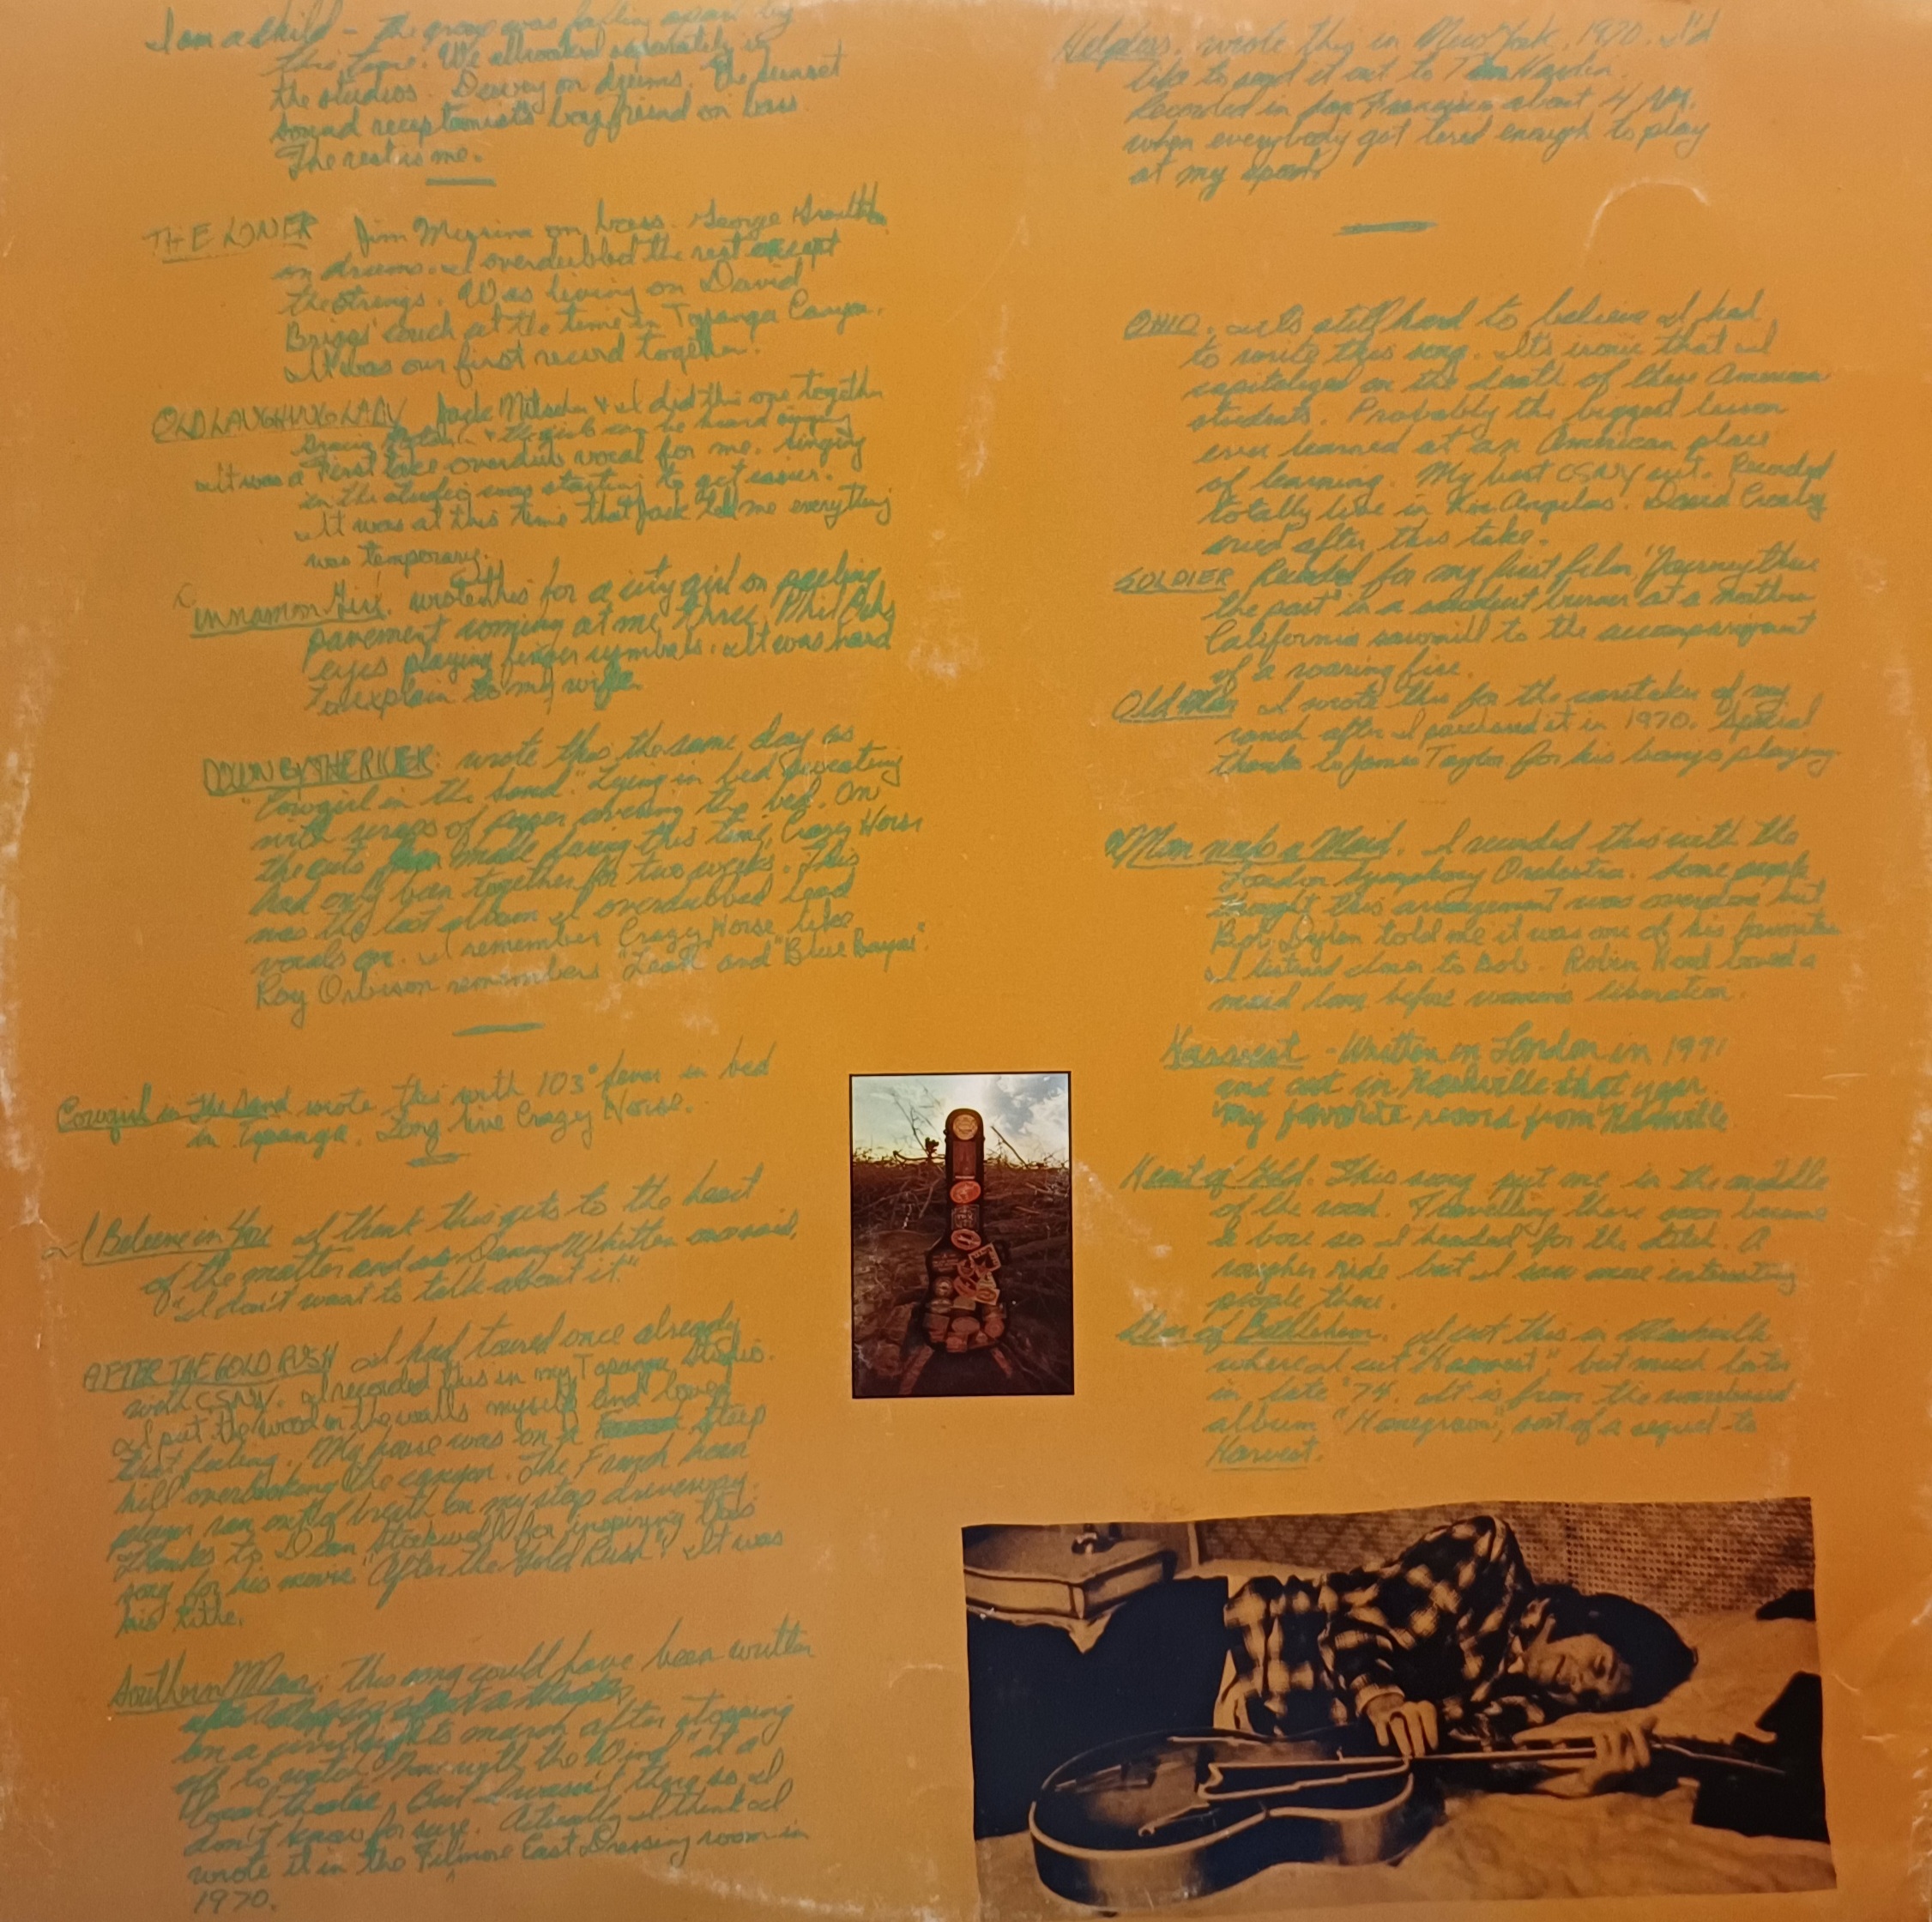 I am a child - the group was falling apart by
this time. We all worked separately in
the studios. Dewey on drums. The sunset
sound receptionist's boyfriend on bass
The rest is me.
THE LONER Jim Messina on bass. George Grantham
on drums. I overdubbed the rest except
the strings. Was living on David
Briggs' couch at the time in Topanga Canyon.
It was our first record together.
OLD LAUGHING LADY Jack Nitzsche & I did this one together
& the girls can be heard singing
It was a First take overdub vocal for me. singing
in the studio was starting to get easier.
It was at this time that Jack told me everything
was temporary.
Cinnamon Girl. wrote this for a city girl on peeling
pavement coming at me thru Phil Ochs
eyes playing finger cymbals. It was hard
to explain to my wife.
DOWN BY THE RIVER: wrote this the same day as
"Cowgirl in the Sand." Lying in bed sweating
with scraps of paper covering the bed. On
the cuts made during this time, Crazy Horse
had only been together for two weeks. This
was the last album I overdubbed lead
vocals on. I remember Crazy Horse like
Roy Orbison remembers "Leah" and "Blue Bayou".
Cowgirl in the Sand wrote this with 103° fever in bed
in Topanga. Long live Crazy Horse.
I Believe in You I think this gets to the heart
of the matter and as Danny Whitten once said,
"I don't want to talk about it."
AFTER THE GOLD RUSH I had toured once already
with CSNY. I recorded this in my Topanga Studio.
I put the wood on the walls myself and loved
that feeling. My house was on a steep
hill overlooking the canyon. The French horn
player ran out of breath on my steep driveway.
Thanks to Dean Stockwell for inspiring this
song for his movie "After the Gold Rush". It was
his title.
Southern Man: This song could have been written
on a civil rights march after stopping
off to watch "Gone with the Wind" at a
local theatre. But I wasn't there so I
don't know for sure. Actually I think I
wrote it in the Filmore East Dressing room in
1970.
Helpless. wrote this in New York, 1970. I'd
like to send it out to Tim Hardin.
Recorded in San Francisco about 4 AM.
when everybody got tired enough to play
at my speed.
OHIO. It's still hard to believe I had
to write this song. It's ironic that I
capitalized on the death of these American
students. Probably the biggest lesson
ever learned at an American place
of learning. My best CSNY cut. Recorded
totally live in Los Angeles. David Crosby
cried after this take.
SOLDIER Recorded for my first film, "Journey thru
the past" in a sawdust burner at a northern
California sawmill to the accompaniment
of a roaring fire.
Old Man I wrote this for the caretaker of my
ranch after I purchased it in 1970. Special
thanks to James Taylor for his banjo playing
A Man needs a Maid. I recorded this with the
London Symphony Orchestra. Some people
thought this arrangement was overdone but
Bob Dylan told me it was one of his favorites.
I listened closer to Bob. Robin Hood loved a
maid long before women's liberation.
Harvest - Written in London in 1971
and cut in Nashville that year.
my favorite record from Nashville
Heart of Gold. This song put me in the middle
of the road. Travelling there soon became
a bore so I headed for the ditch. A
rougher ride but I saw more interesting
people there.
Star of Bethlehem. I cut this in Nashville
where I cut "Harvest" but much later
in late '74. It is from the unreleased
album "Homegrown", sort of a sequel to
Harvest.